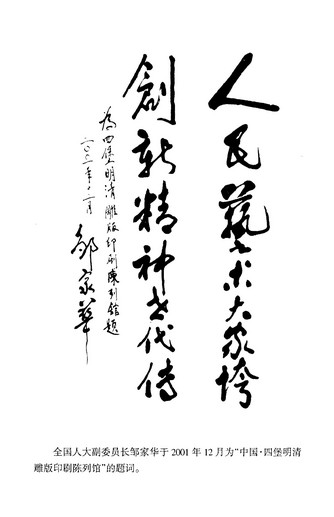 人民藝术大家垮
創新精神世代傳
为四堡明清雕版印刷陳列館題
二〇〇一年十二月
鄒家華
全国人大副委员长邹家华于2001年12月为“中国·四堡明清
雕版印刷陈列馆”的题词。